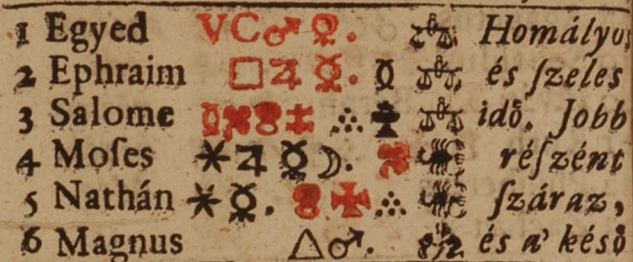 1 Egyed VC♂☿. ♎ Homályos
2 Ephraim □♃☿. ♎ és ſzeles
3 Salome ♎ idő. Jobb
4 Moſes ⚹♃☿☽. ♏ réſzént
5 Nathán ⚹☿. ♏ ſzáraz,
6 Magnus △♂. és a' késő